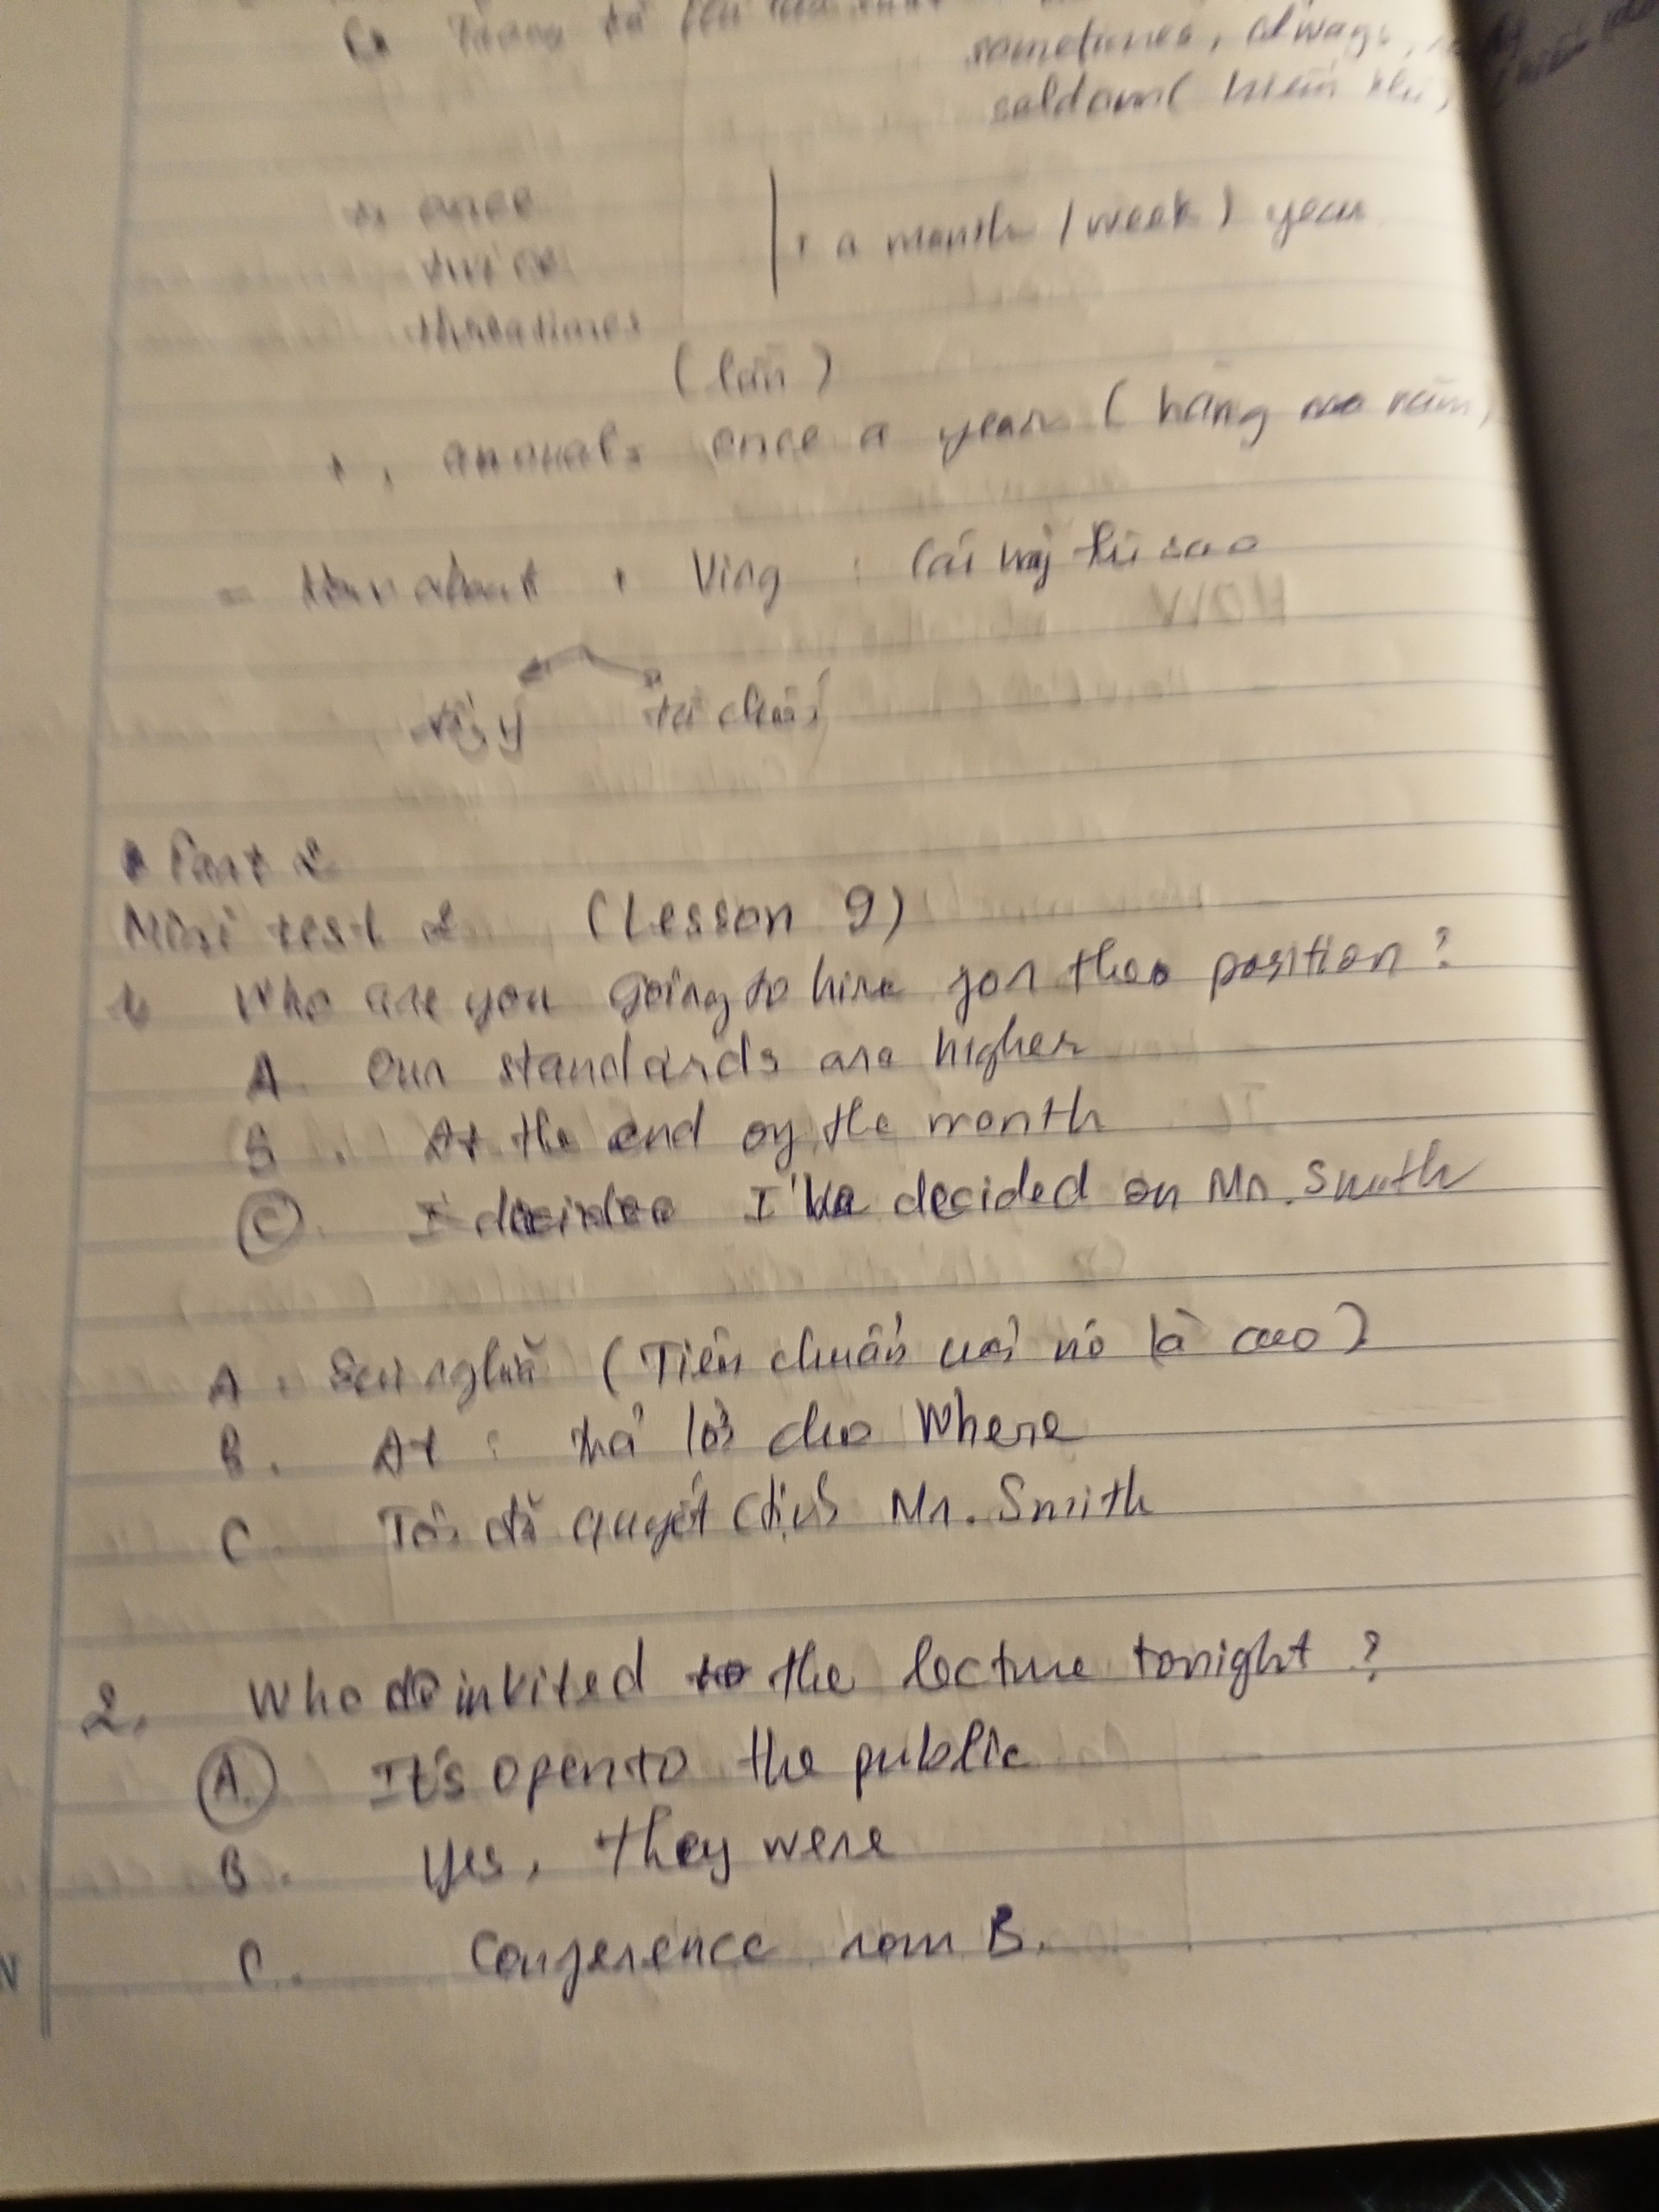 sometimes, always,
seldom ( hiếm khi,
once
twice | + a month / week / year
three times
(lần)
+, annual: once a year ( hàng năm
= How about + Ving : Cái này thì sao
đồng ý từ chối
* Part 2
Mini test 2 (Lesson 9)
1. Who are you going to hire for the position?
A. Our standards are higher
B. At the end of the month
C. I decided I've decided on Mr. Smith
A. (Tiêu chuẩn nó là cao)
B. At : trả lời cho Where
C. Tôi đã quyết định Mr. Smith
2. Who invited to the lecture tonight ?
A. It's open to the public
B. Yes, they were
C. Conference room B.